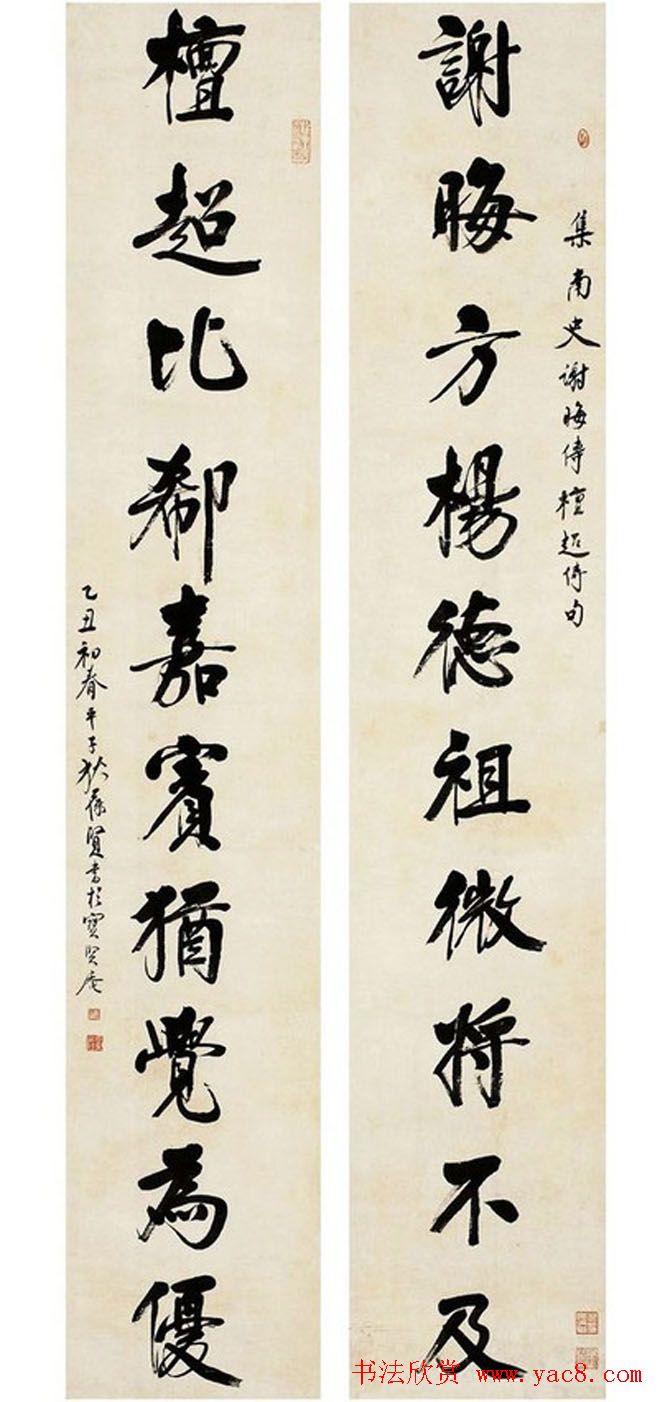 集南史谢晦傳檀超傳句
謝晦方楊德祖微將不及
檀超比郗嘉賓猶覺為優
乙丑初春平子狄葆賢書於寶賢庵
书法欣赏 www.yac8.com